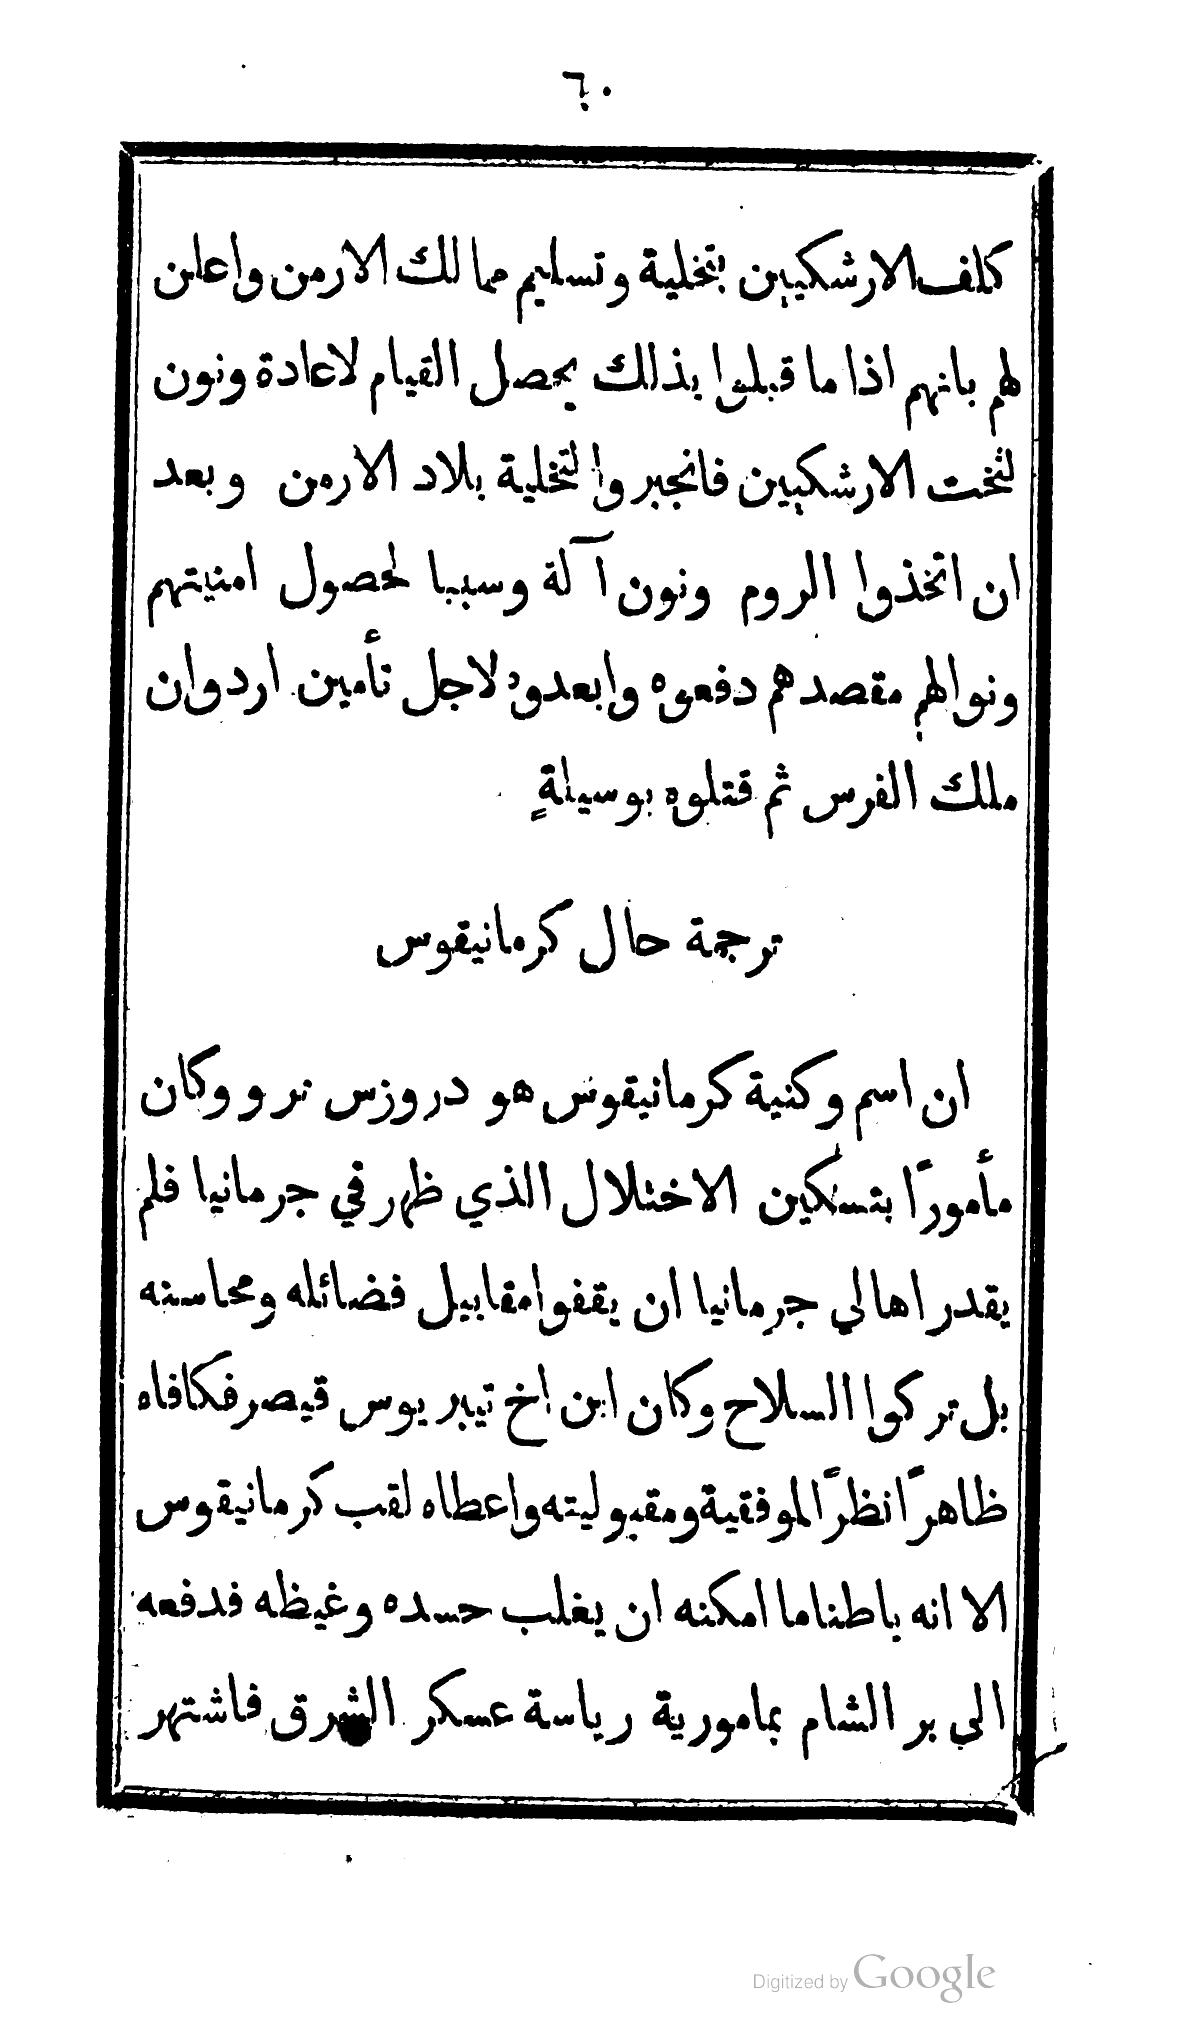 ٦٠
كلف الارشكيين بتخلية وتسليم ممالك الارمن واعلن
لهم بانهم اذا ما قبلوا بذلك يحصل القيام لاعادة ونون
لتخت الارشكيين فانجبروا لتخلية بلاد الارمن وبعد
ان اتخذوا الروم ونون آلة وسببا لحصول امنيتهم
ونوالهم مقصدهم دفعوه وابعدوه لاجل تأمين اردوان
ملك الفرس ثم قتلوه بوسيلةٍ
ترجمة حال كرمانيقوس
ان اسم وكنية كرمانيقوس هو دروزس نرو وكان
مأمورًا بتسكين الاختلال الذي ظهر في جرمانيا فلم
يقدر اهالي جرمانيا ان يقفوا مقابيل فضائله ومحاسنه
بل تركوا السلاح وكان ابن اخ تيبريوس قيصر فكافاه
ظاهرًا نظرًا لموفقية ومقبوليته واعطاه لقب كرمانيقوس
الا انه باطنا ما امكنه ان يغلب حسده وغيظه فدفعه
الى بر الشام بمامورية رياسة عسكر الشرق فاشتهر
Digitized by Google